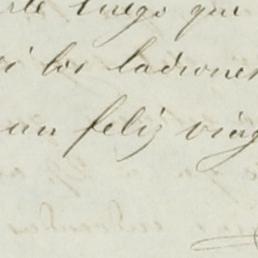 luego que
los ladrones
un feliz viag